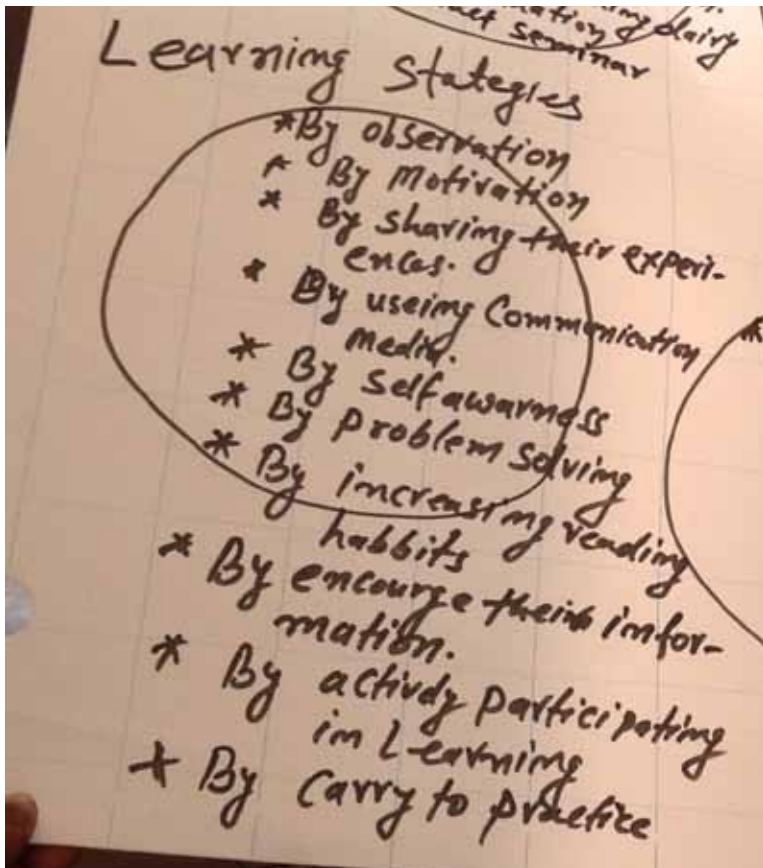 ing dairy
mation
seminar
Learning Stategies
*By observation
* By Motivation
* By sharing their experi-
ences.
* By useing Communication
Media.
* By selfawarness
* By problem solving
* By increasing reading
habbits
* By encourge their infor-
mation.
* By activly participating
in Learning
* By Carry to practice